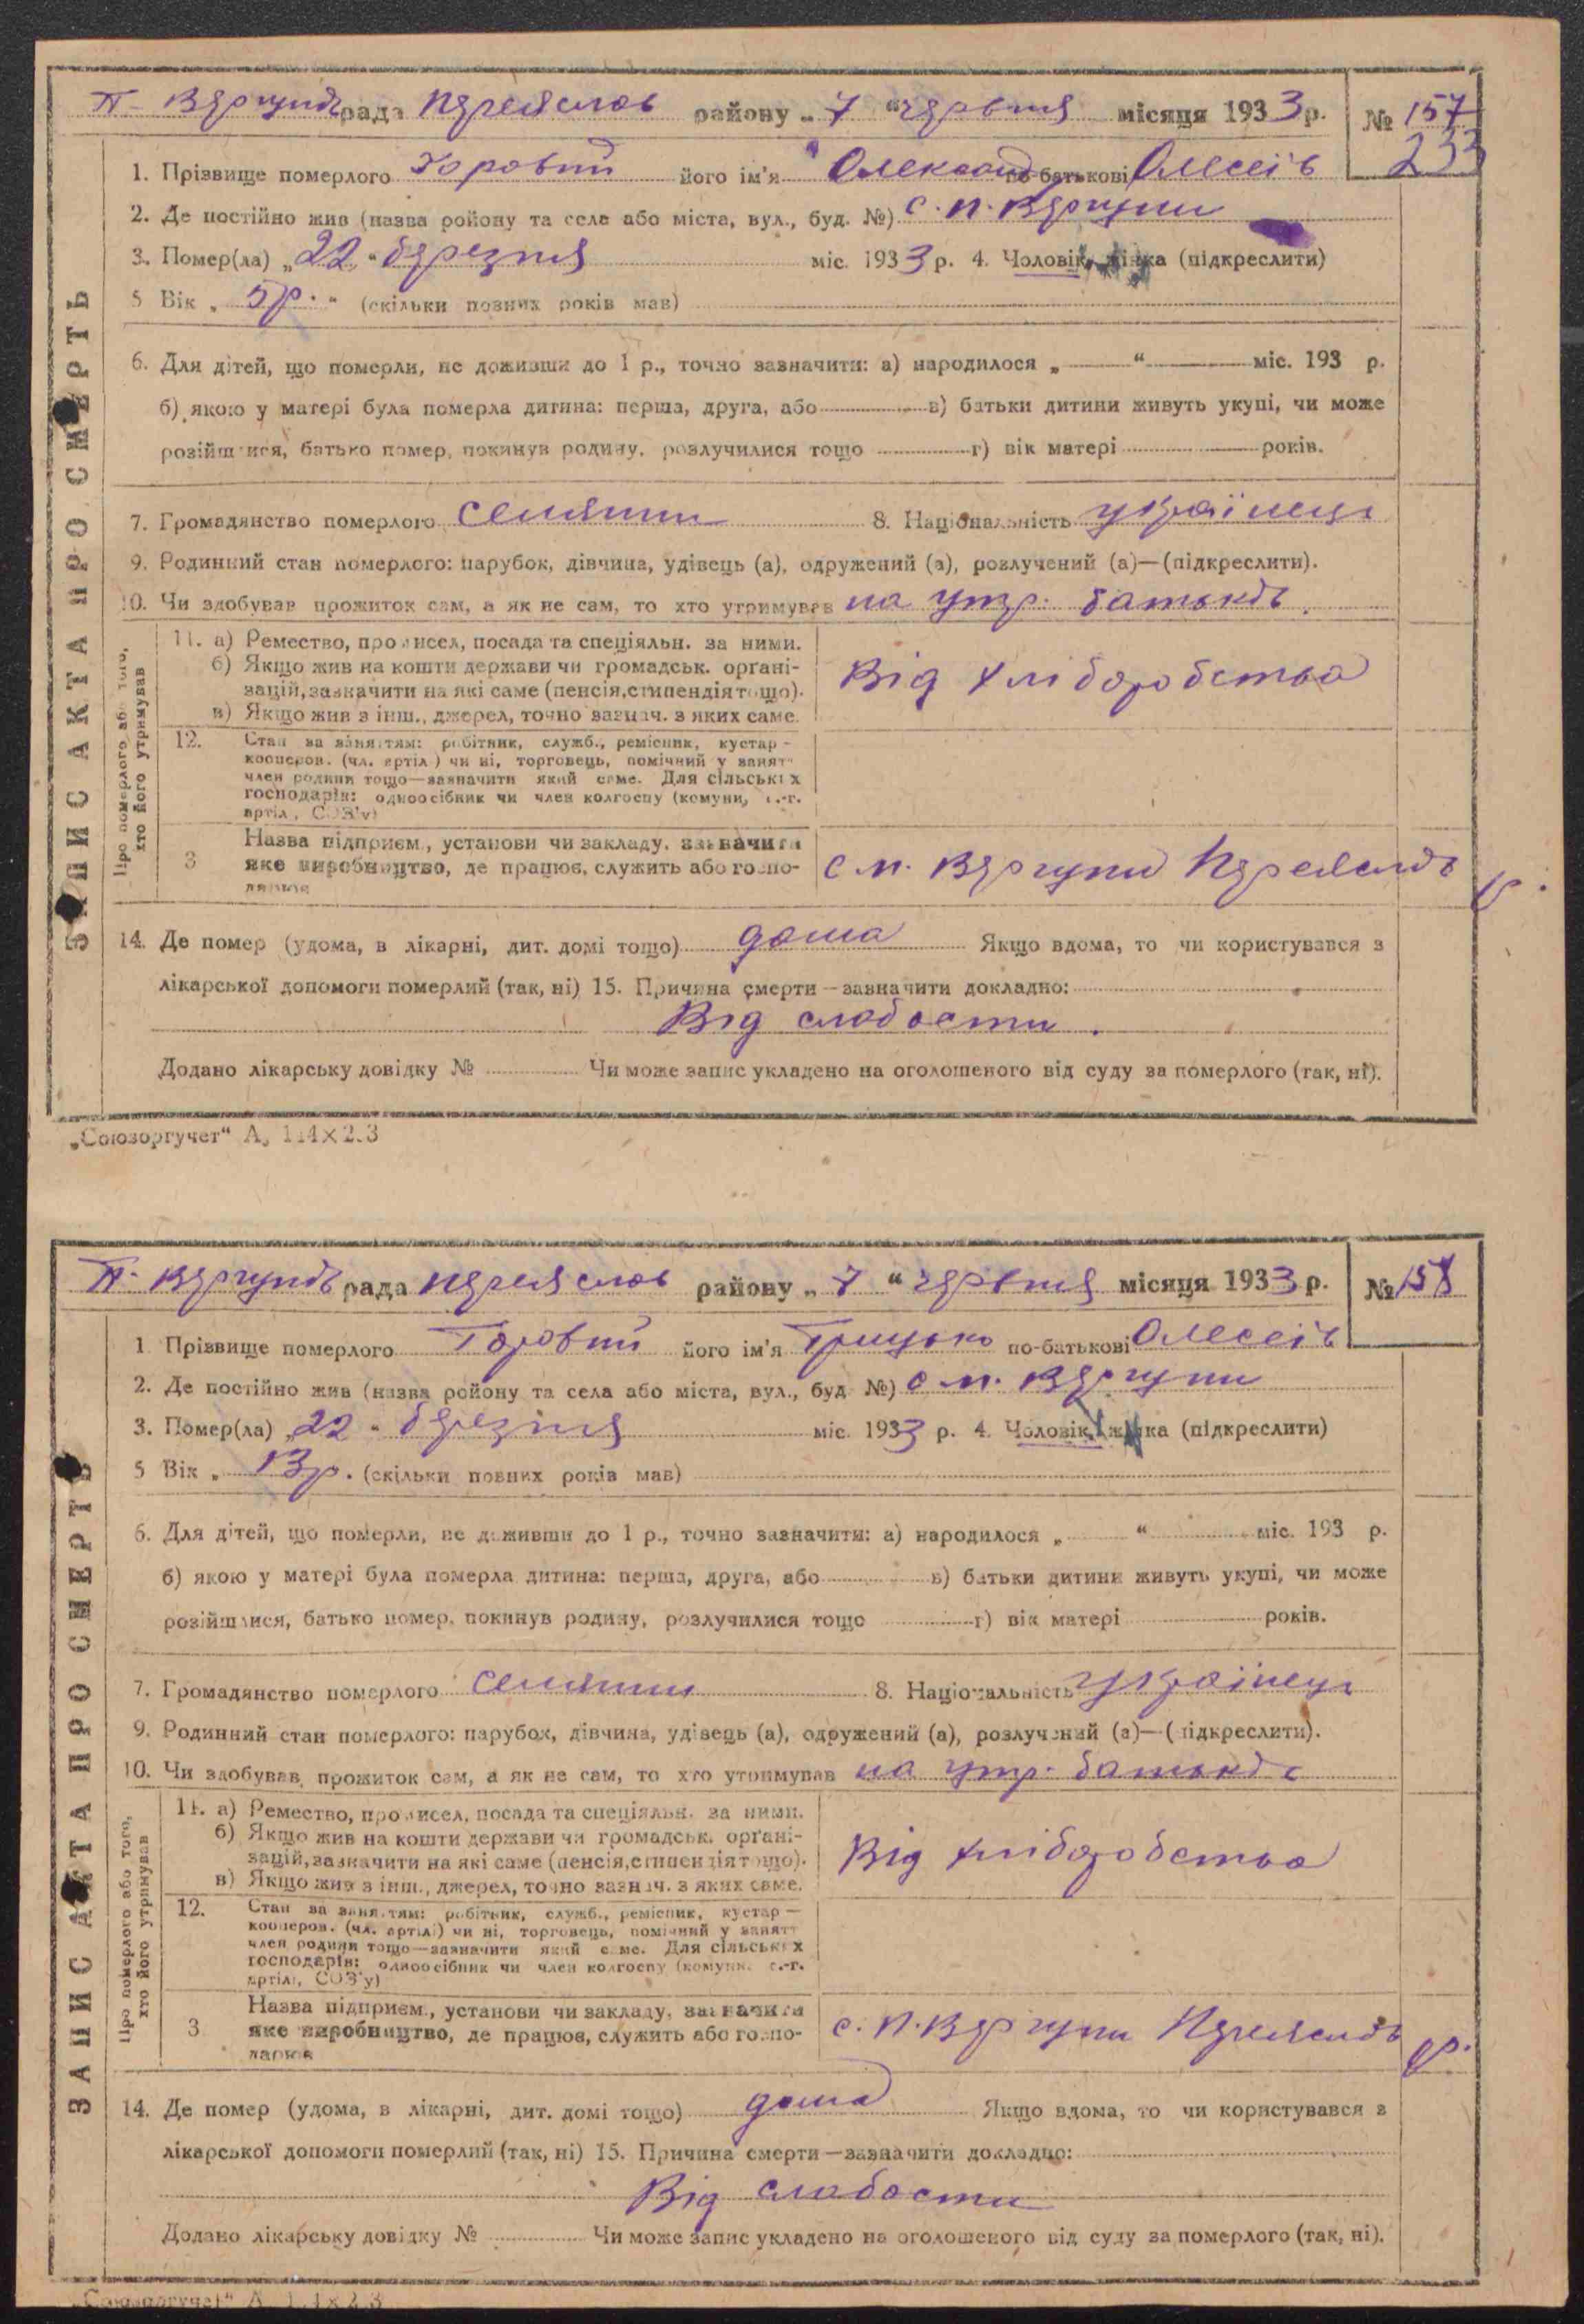 П. Вергунівс рада Переяслов району „ 7 “ червня місяця 1933 р. № 157
233
1. Прізвище померлого Горовий його ім'я Олександ по батькові Олексіїв
2. Де постійно жив (назва ройону та села або міста, вул., буд. №) с. П. Вергуни
3. Помер(ла) „ 22 “ березня міс. 1933 р. 4. Чоловік, жінка (підкреслити)
5 Вік „ 5 р. “ (скільки повних років мав)
6. Для дітей, що померли, не доживши до 1 р., точно зазначити: а) народилося „ “ міс. 193 р.
б) якою у матері була померла дитина: перша, друга, або в) батьки дитини живуть укупі, чи може
розійшлися, батько помер, покинув родину, розлучилися тощо г) вік матері років.
7. Громадянство померлого селянин 8. Національність українець
9. Родинний стан померлого: парубок, дівчина, удівець (а), одружений (а), розлучений (а)—(підкреслити).
10. Чи здобував прожиток сам, а як не сам, то хто утримував на утр. батьків
11. а) Ремество, промисел, посада та спеціяльн. за ними.
б) Якщо жив на кошти держави чи громадськ. органі-
зацій, зазначити на які саме (пенсія, стипендія тощо).
в) Якщо жив з інш., джерел, точно зазнач. з яких саме.
Від хліборобства
12. Стан за заняттям: робітник, служб., ремісник, кустар -
кооперов. (чл. артіл ) чи ні, торговець, помічний у занятт
член родини тощо—зазначити який саме. Для сільських
господарів: одноосібник чи член колгоспу (комуни, с.-г.
артіл , СОЗ'у)
3 Назва підприєм., установи чи закладу, зазначити
яке виробництво, де працює, служить або госпо-
дарює
с П. Вергуни Переяслівс р.
14. Де помер (удома, в лікарні, дит. домі тощо) дома Якщо вдома, то чи користувався з
лікарської допомоги померлий (так, ні) 15. Причина смерти—зазначити докладно:
Від слабости.
Додано лікарську довідку № Чи може запис укладено на оголошеного від суду за померлого (так, ні).
ЗАПИС АКТА ПРО СМЕРТЬ
Про померлого або того,
хто його утримував
„Союзоргучет“ А
П. Вергунівс рада Переяслов району „ 7 “ червня місяця 1933 р. № 158
1 Прізвище померлого Горовий його ім'я Грицько по-батькові Олексіїв
2. Де постійно жив (назва ройону та села або міста, вул., буд №) с П. Вергуни
3. Помер(ла) „ 22 “ березня міс. 1933 р. 4. Чоловік, жінка (підкреслити)
5 Вік „ 13 р. (скільки повних років мав)
6. Для дітей, що померли, не доживши до 1 р., точно зазначити: а) народилося „ “ міс. 193 р.
б) якою у матері була померла дитина: перша, друга, або в) батьки дитини живуть укупі, чи може
розійшлися, батько помер, покинув родину, розлучилися тощо г) вік матері років.
7. Громадянство померлого селянин 8. Національність українець
9. Родинний стан померлого: парубок, дівчина, удівець (а), одружений (а), розлучений (а)—(підкреслити).
10. Чи здобував прожиток сам, а як не сам, то хто утримував на утр. батьків
11. а) Ремество, промисел, посада та спеціяльн. за ними.
б) Якщо жив на кошти держави чи громадськ. органі-
зацій, зазначити на які саме (пенсія, стипендія тощо).
в) Якщо жив з інш., джерел, точно зазнач. з яких саме.
Від хліборобства
12. Стан за заняттям: робітник, служб., ремісник, кустар —
кооперов. (чл. артілі) чи ні, торговець, помічний у занятт
член родини тощо—зазначити який саме. Для сільських
господарів: одноосібник чи член колгоспу (комуни, с.-г.
артілі, СОЗ'у)
3 Назва підприєм., установи чи закладу, зазначити
яке виробництво, де працює, служить або госпо-
дарює
с. П. Вергуни Переяслівс р.
14. Де помер (удома, в лікарні, дит. домі тощо) дома Якщо вдома, то чи користувався з
лікарської допомоги померлий (так, ні) 15. Причина смерти—зазначити докладно:
Від слабости
Додано лікарську довідку № Чи може запис укладено на оголошеного від суду за померлого (так, ні).
ЗАПИС АКТА ПРО СМЕРТЬ
Про померлого або того,
хто його утримував
„Союзоргучет“ А